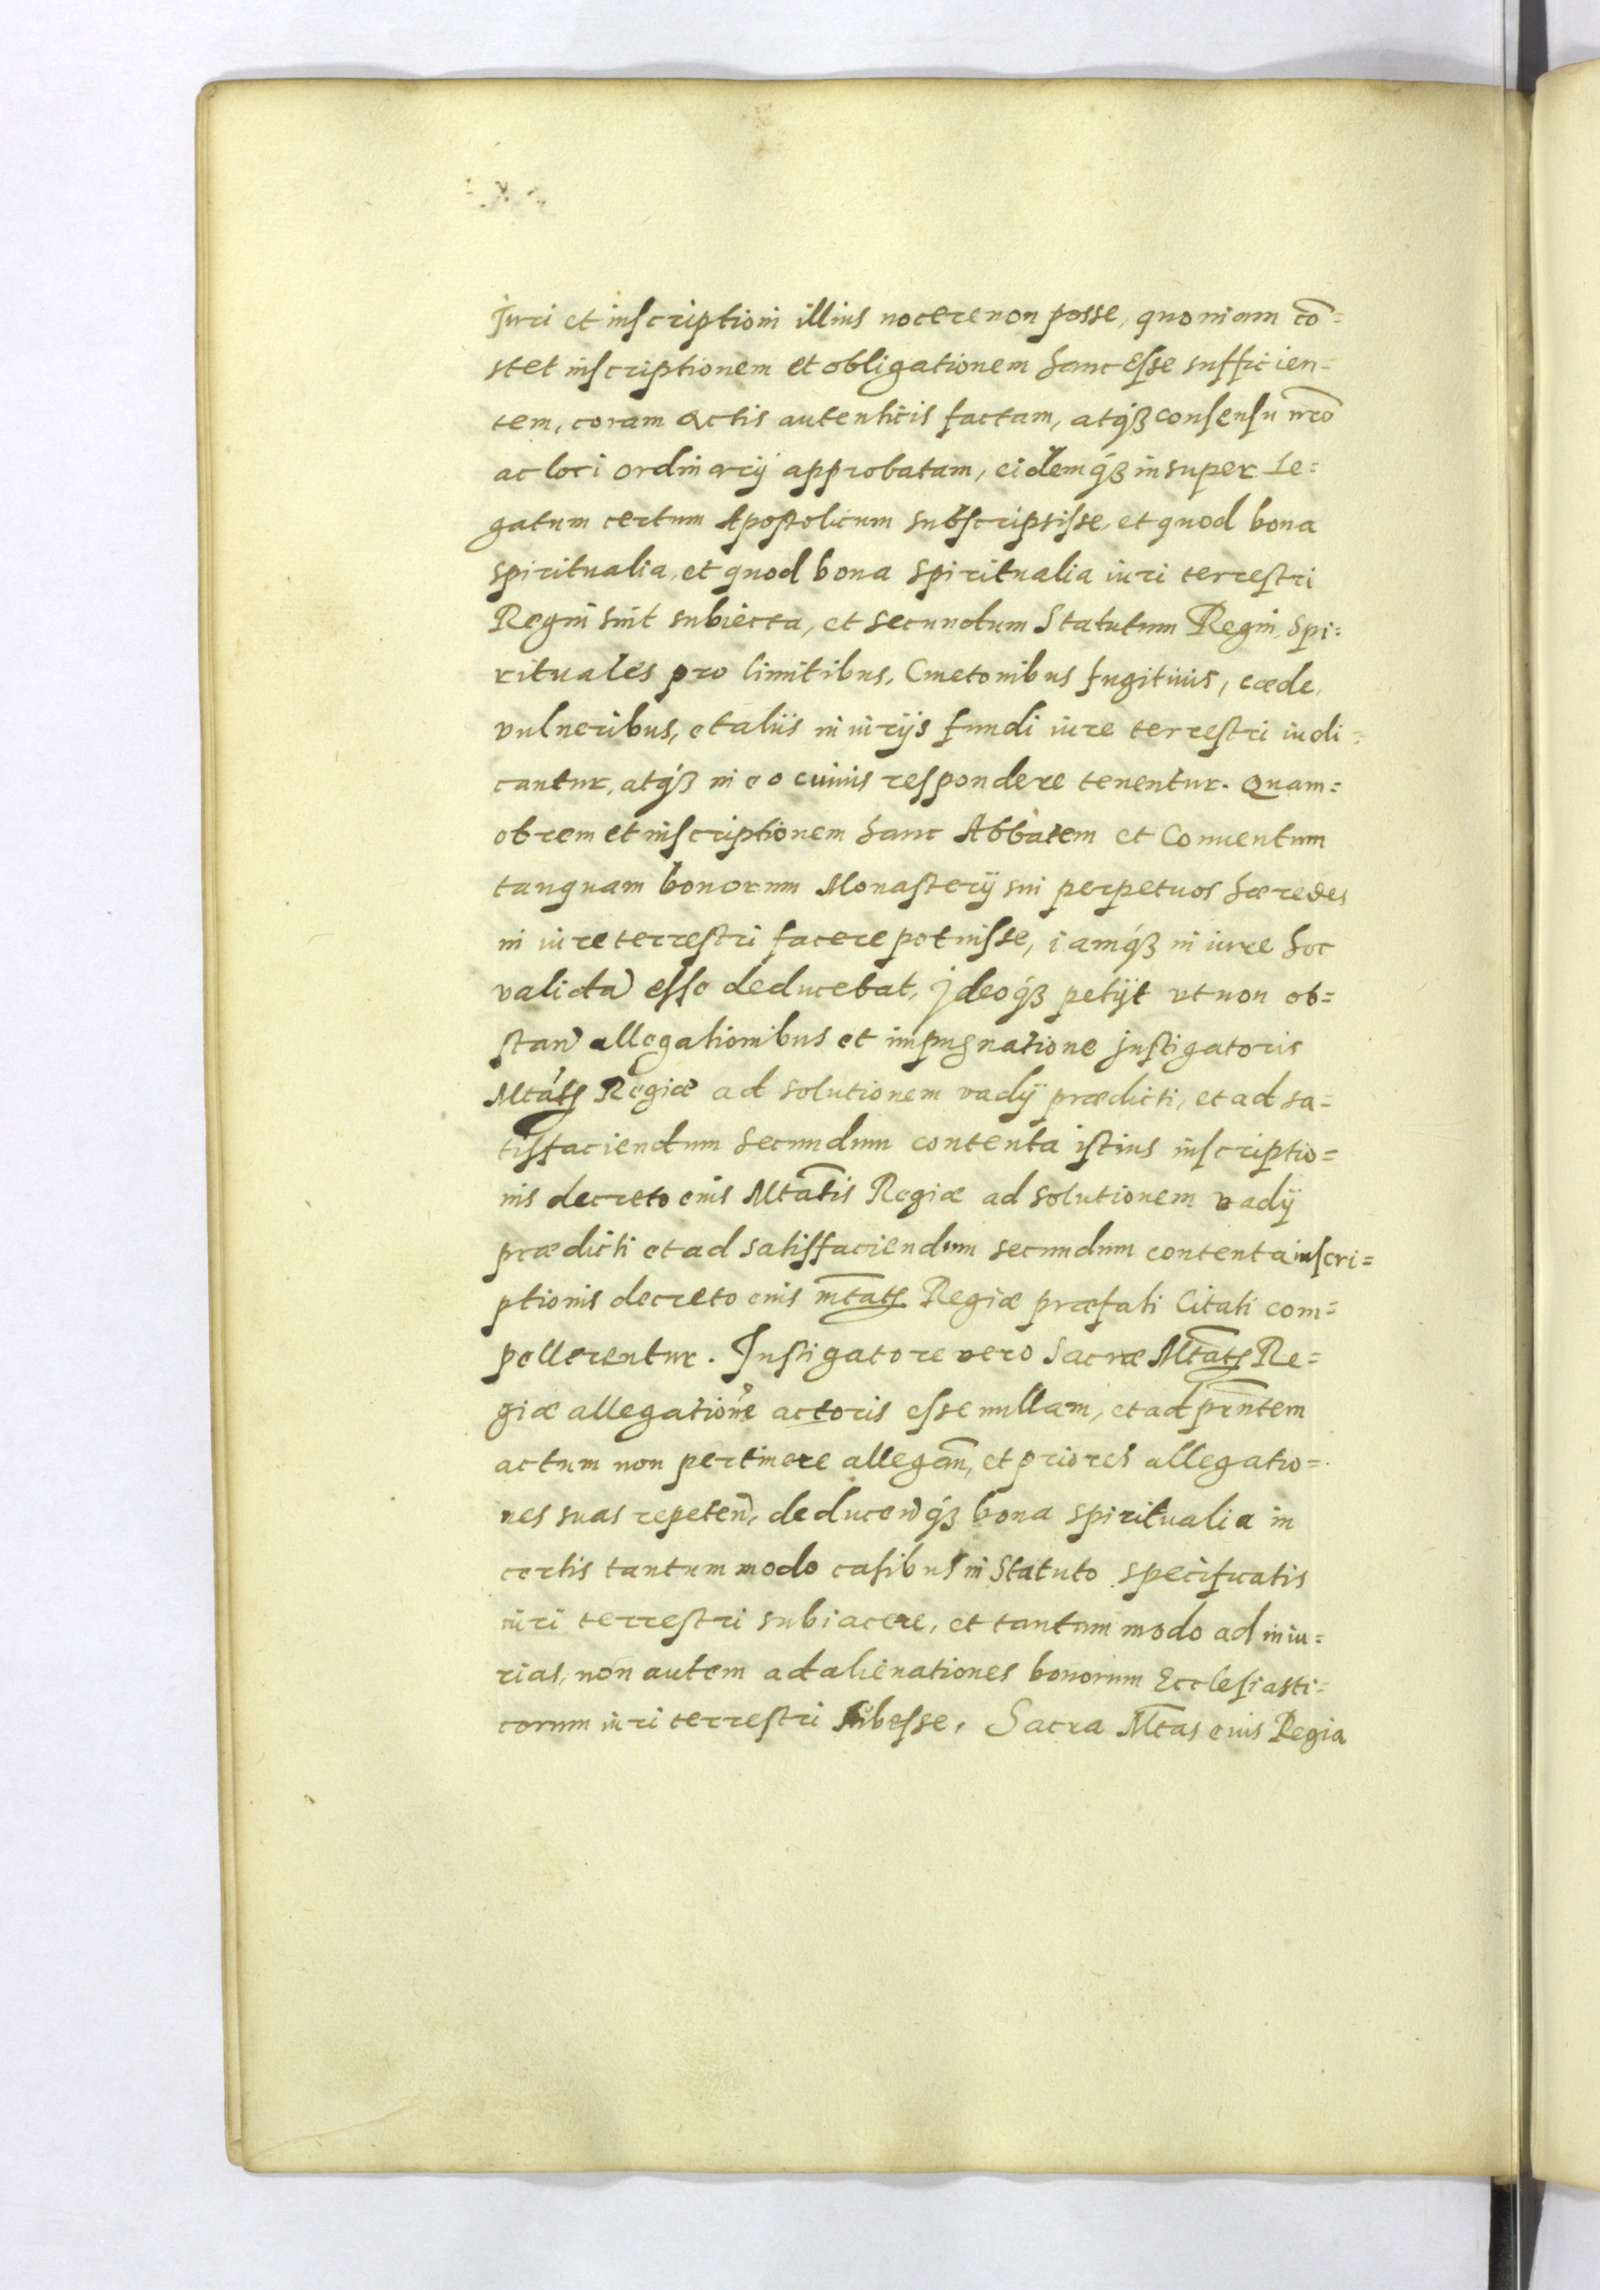 Juri et inscriptioni illius nocere non posse, quoniam cō=
stet inscriptionem et obligationem hanc esse sufficien=
tem, coram Actis autenticis factam, atq́ꝫ consensu nr̃o
ac loci ordinarij approbatam, eidemq́ꝫ insuper Le=
gatum certum Apostolicum subscripsisse, et quod bona
spiritualia, et quod bona spiritualia iuri terrestri
Regni sint subiecta, et secundum Statutum Regni, Spi=
rituales pro limitibus, Cmetonibus fugitiuis, cæde,
vulneribus, et aliis iniurijs fundi iure terrestri iudi=
cantur, atq́ꝫ in eo cuiuis respondere tenentur. Quam=
obrem et inscriptionem hanc Abbatem et Conuentum
tanquam bonorum Monasterij sui perpetuos hæredes
in iure terrestri facere potuisse, iamq́ꝫ in iure hoc
validā esse deducebat, Jdeoq́ꝫ petijt vt non ob=
stan̄ allegationibus et impugnatione Jnstigatoris
Mtatis Regiæ ad solutionem vadij prædicti, et ad sa=
tisfaciendum secundum contenta istius inscriptio=
nis decreto eius Mtātis Regiæ ad solutionem vadij
prædicti et ad satisfaciendum secundum contenta inscri=
ptionis decreto eius mtātis Regiæ præfati Citati com=
pellerentur. Jnstigatore vero Sacræ Mtātis Re=
giæ allegationē actoris esse nullam, et ad pr̄ntem
actum non pertinere allegan̄, et priores allegatio=
nes suas repeten̄, deducen̄q́ꝫ bona spiritualia in
certis tantummodo casibus in Statuto specificatis
iuri terrestri subiacere, et tantummodo ad iniu=
rias, non autem ad alienationes bonorum Ecclesiasti=
corum iuri terrestri subesse, Sacra Mtās eius Regia